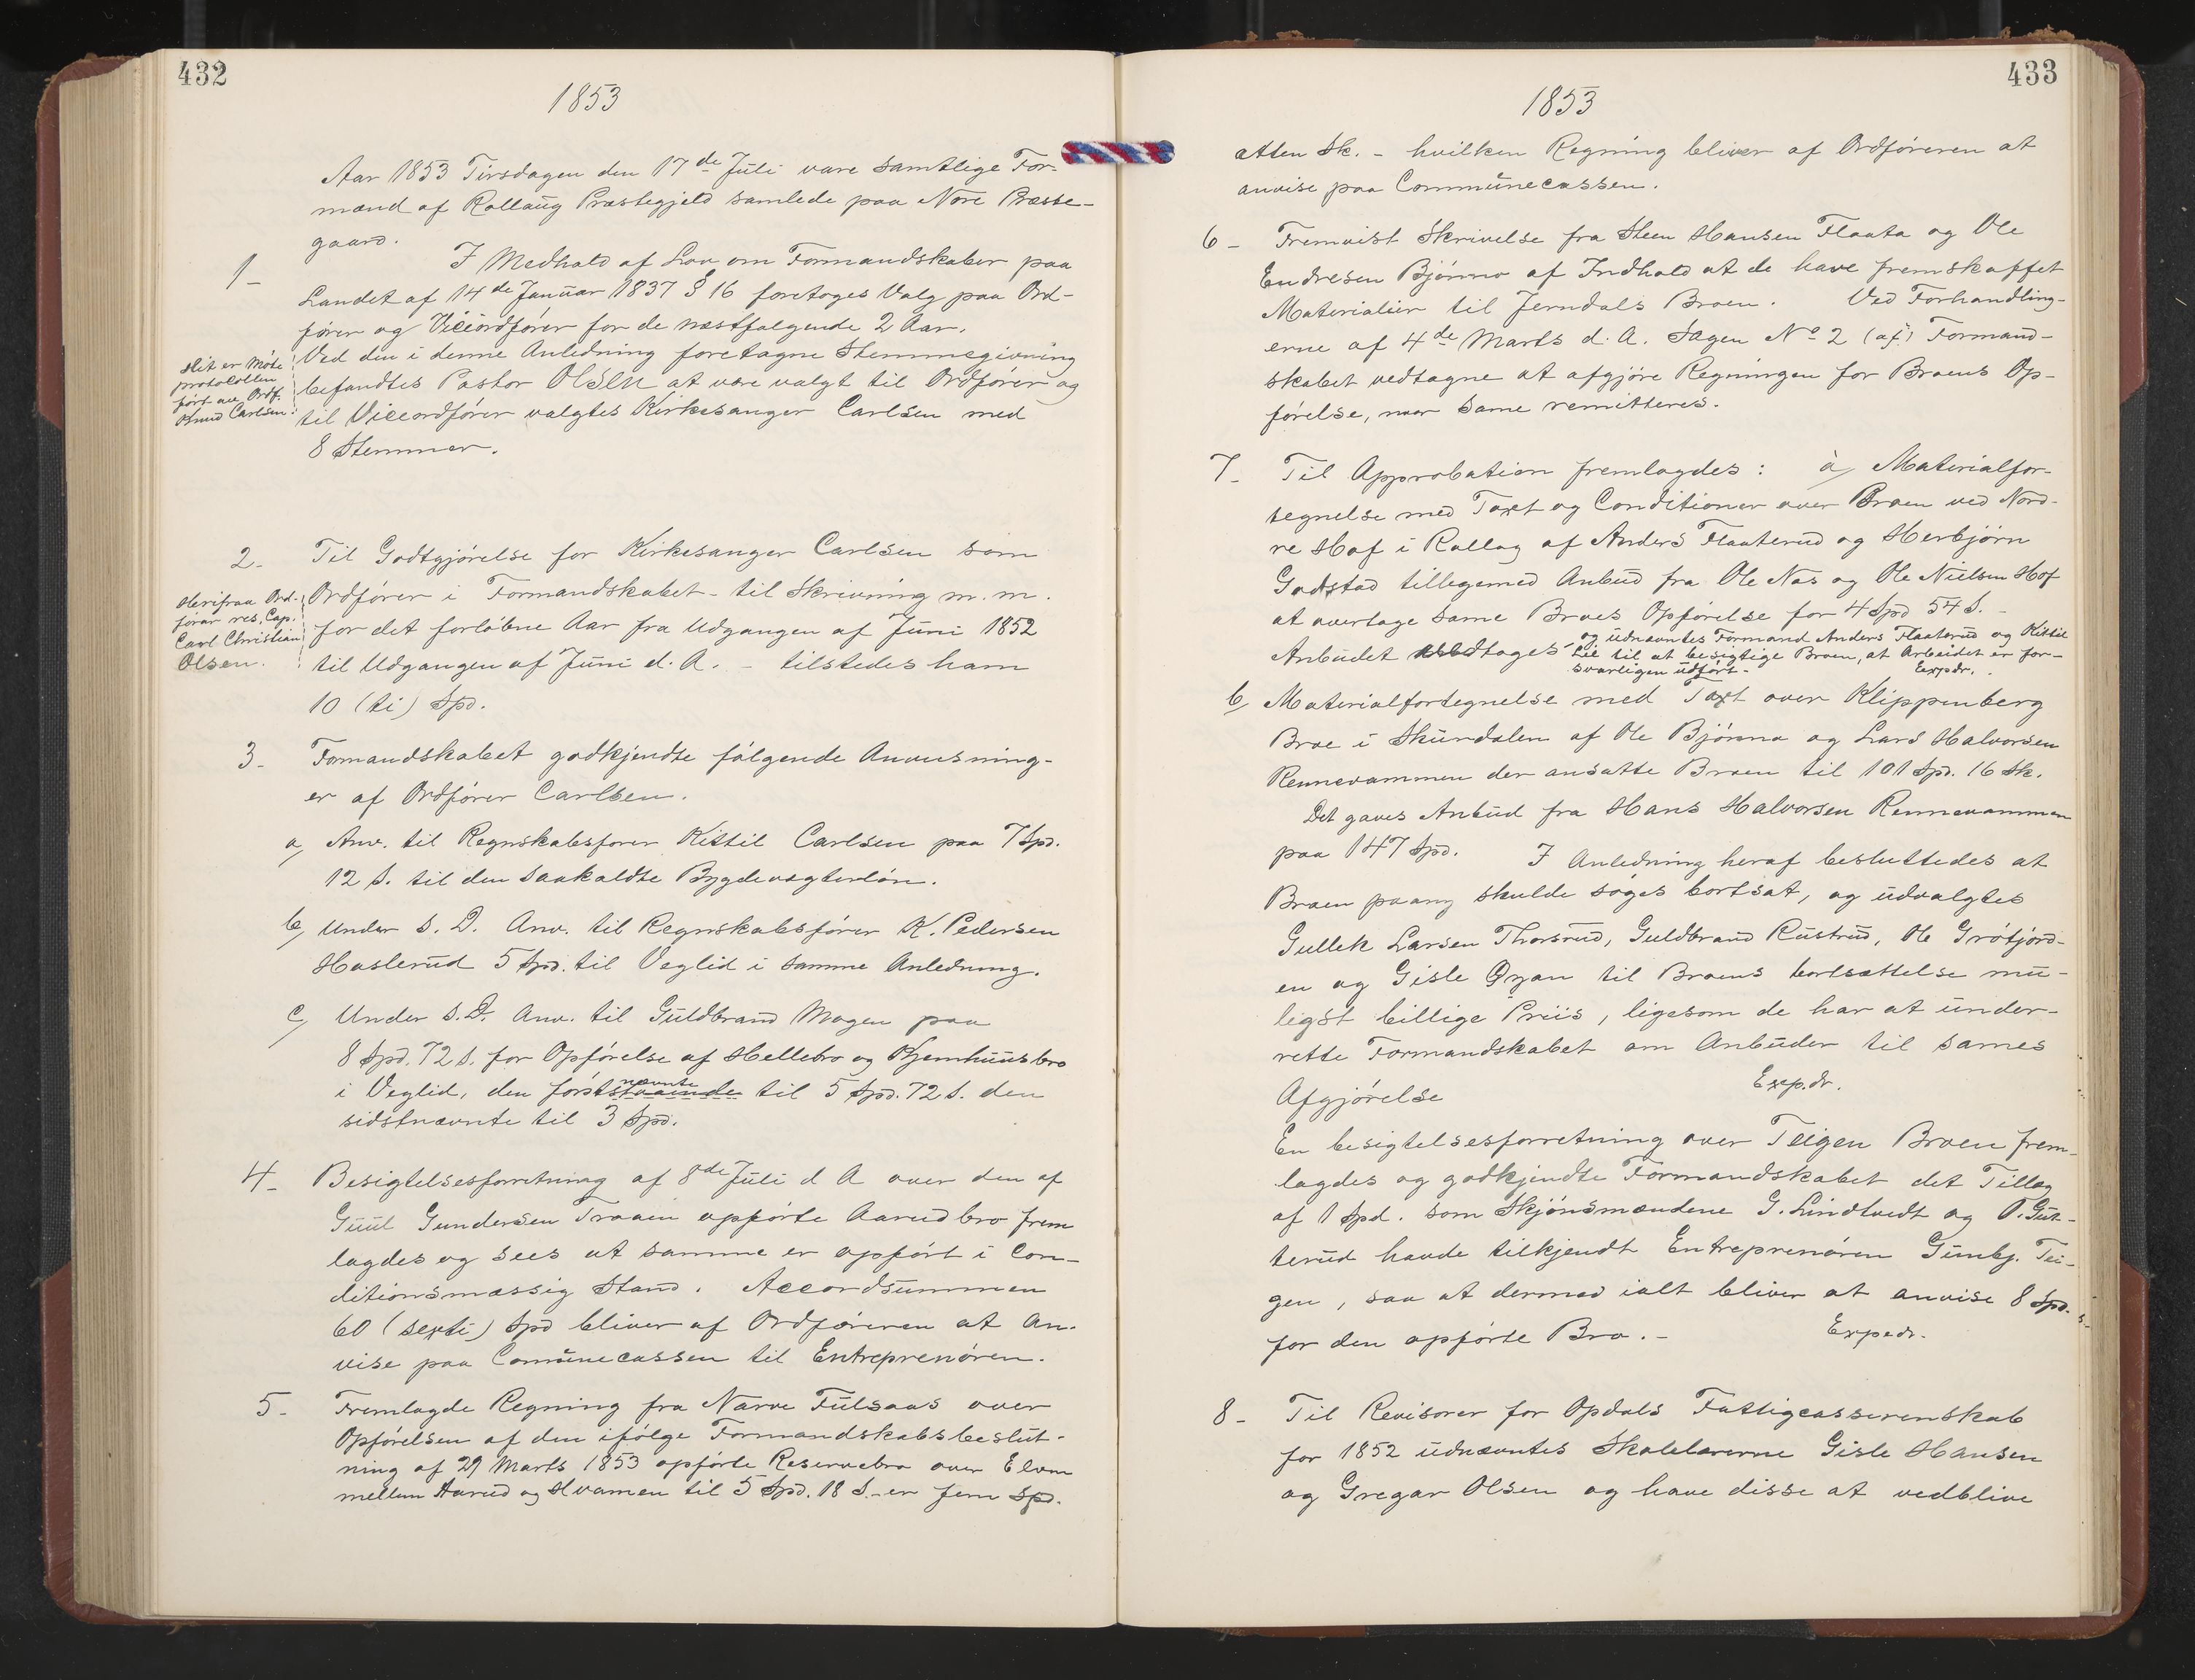 432
1853
Aar 1853 Tirsdagen den 17de Juli vare samtlige For-
mænd af Rollaug Præstegjeld samlede paa Nore Præste-
gaard.
1- I Medhold af Lov om Formandskaber paa
Landet af 14de Januar 1837 § 16 foretoges Valg paa Ord-
fører og Viceordfører for de næstfølgende 2 Aar.
Ved den i denne Anledning foretagne Stemmegivning
befandtes Pastor Olsen at være valgt til Ordfører og
til Viceordfører valgtes Kirkesanger Carlsen med
8 Stemmer.
Hit er Møte
protocollen
ført av Ordf.
Knud Carlsen.
2- Til Godtgjørelse for Kirkesanger Carlsen som
Ordfører i Formandskabet - til Skrivning m. m.
for det forløbne Aar fra Udgangen af Juni 1852
til Udgangen af Juni d. A. - tilstedes ham
10 (ti) Spd.
Herifraa Ord-
fører res. Cap.
Carl Christian
Olsen.
3- Formandskabet godkjendte følgende Anvisning-
er af Ordfører Carlsen.
a, Anv. til Regnskabsfører Kittil Carlsen paa 7 Spd.
12 s. til den saakaldte Bygdevægterløn.
b, Under s. D. Anv. til Regnskabsfører K. Pedersen
Haslerud 5 Spd. til Veglid i samme Anledning.
c, Under s. D. Anv. til Guldbrand Mogen paa
8 Spd. 72 s. for Opførelse af Hellebro og Kjemhuusbro
i Veglid, den første nævnte til 5 Spd. 72 s. den
sidstnævnte til 3 Spd.
4- Besigtelsesforretning af 8de Juli d A over den af
Guul Gundersen Traaen opførte Aarud bro frem
lagdes og sees at samme er opført i Con-
ditionsmæssig Stand. Accordsummen
60 (sexti) Spd bliver af Ordføreren at An-
vise paa Comunecassen til Entreprenøren.
5- Fremlagde Regning fra Narve Fulsaas over
Opførelsen af den ifølge Formandskabsbeslut-
ning af 29 Marts 1853 opførte Reservebro over Elven
mellem Aarud og Hvamen til 5 Spd. 18 s. - er fem Spd.
433
1853
atten Sk. - hvilken Regning bliver af Ordføreren at
anvise paa Communecassen.
6- Fremvist Skrivelse fra Steen Hansen Flaata og Ole
Endresen Bjønno af Indhold at de have fremskaffet
Materialier til Jerndals Broen. Ved Forhandling-
erne af 4de Marts d. A. Sagen No 2 (af) Formand-
skabet vedtagne at afgjøre Regningen for Broens Op-
førelse, naar same remitteres.
7- Til Approbation fremlagdes: a, Materialfor-
tegnelse med Taxt og Conditioner over Broen ved Nord-
re Hof i Rollag af Anders Flaaterud og Herbjørn
Godstad tillegemed Anbud fra Ole Næs og Ole Nielsen Hof
at overtage same Broes Opførelse for 4 Spd 54 s. -
Anbudet vedtages og udnævntes Formand Anders Flaaterud og Kittil
Lie til at besigtige Broen, at Arbeidet er for-
svarligen udført - Expdr.
b, Materialfortegnelse med Taxt over Klippenberg
Broe i Skurdalen af Ole Bjønno og Lars Halvorsen
Rennevammen der ansatte Broen til 101 Spd. 16 Sk.
Det gaves Anbud fra Hans Halvorsen Rennevammen
paa 147 Spd. I Anledning heraf besluttedes at
Broen paany skulde søges bortsat, og udvalgtes
Gullek Larsen Thorsrud, Guldbrand Rustrud, Ole Grøtjord-
en og Gisle Øyan til Broens bortsættelse mu-
ligst billige Priis, ligesom de har at under-
rette Formandskabet om Anbuder til sames
Afgjørelse Exp.dr.
En besigtelsesforretning over Teigen Broen frem-
lagdes og godkjendte Formandskabet det Tillæg
af 1 Spd. som Skjønsmændene G. Lindtvedt og O. Gut-
terud havde tilkjendt Entreprenøren Gunbj. Tei-
gen, saa at dermed ialt bliver at anvise 8 Spd.
for den opførte Bro. - Expedr.
8- Til Revisorer for Opdals Fattigcasserenskab
for 1852 udnævntes Skolelærerne Gisle Hansen
og Gregar Olsen og have disse at vedblive